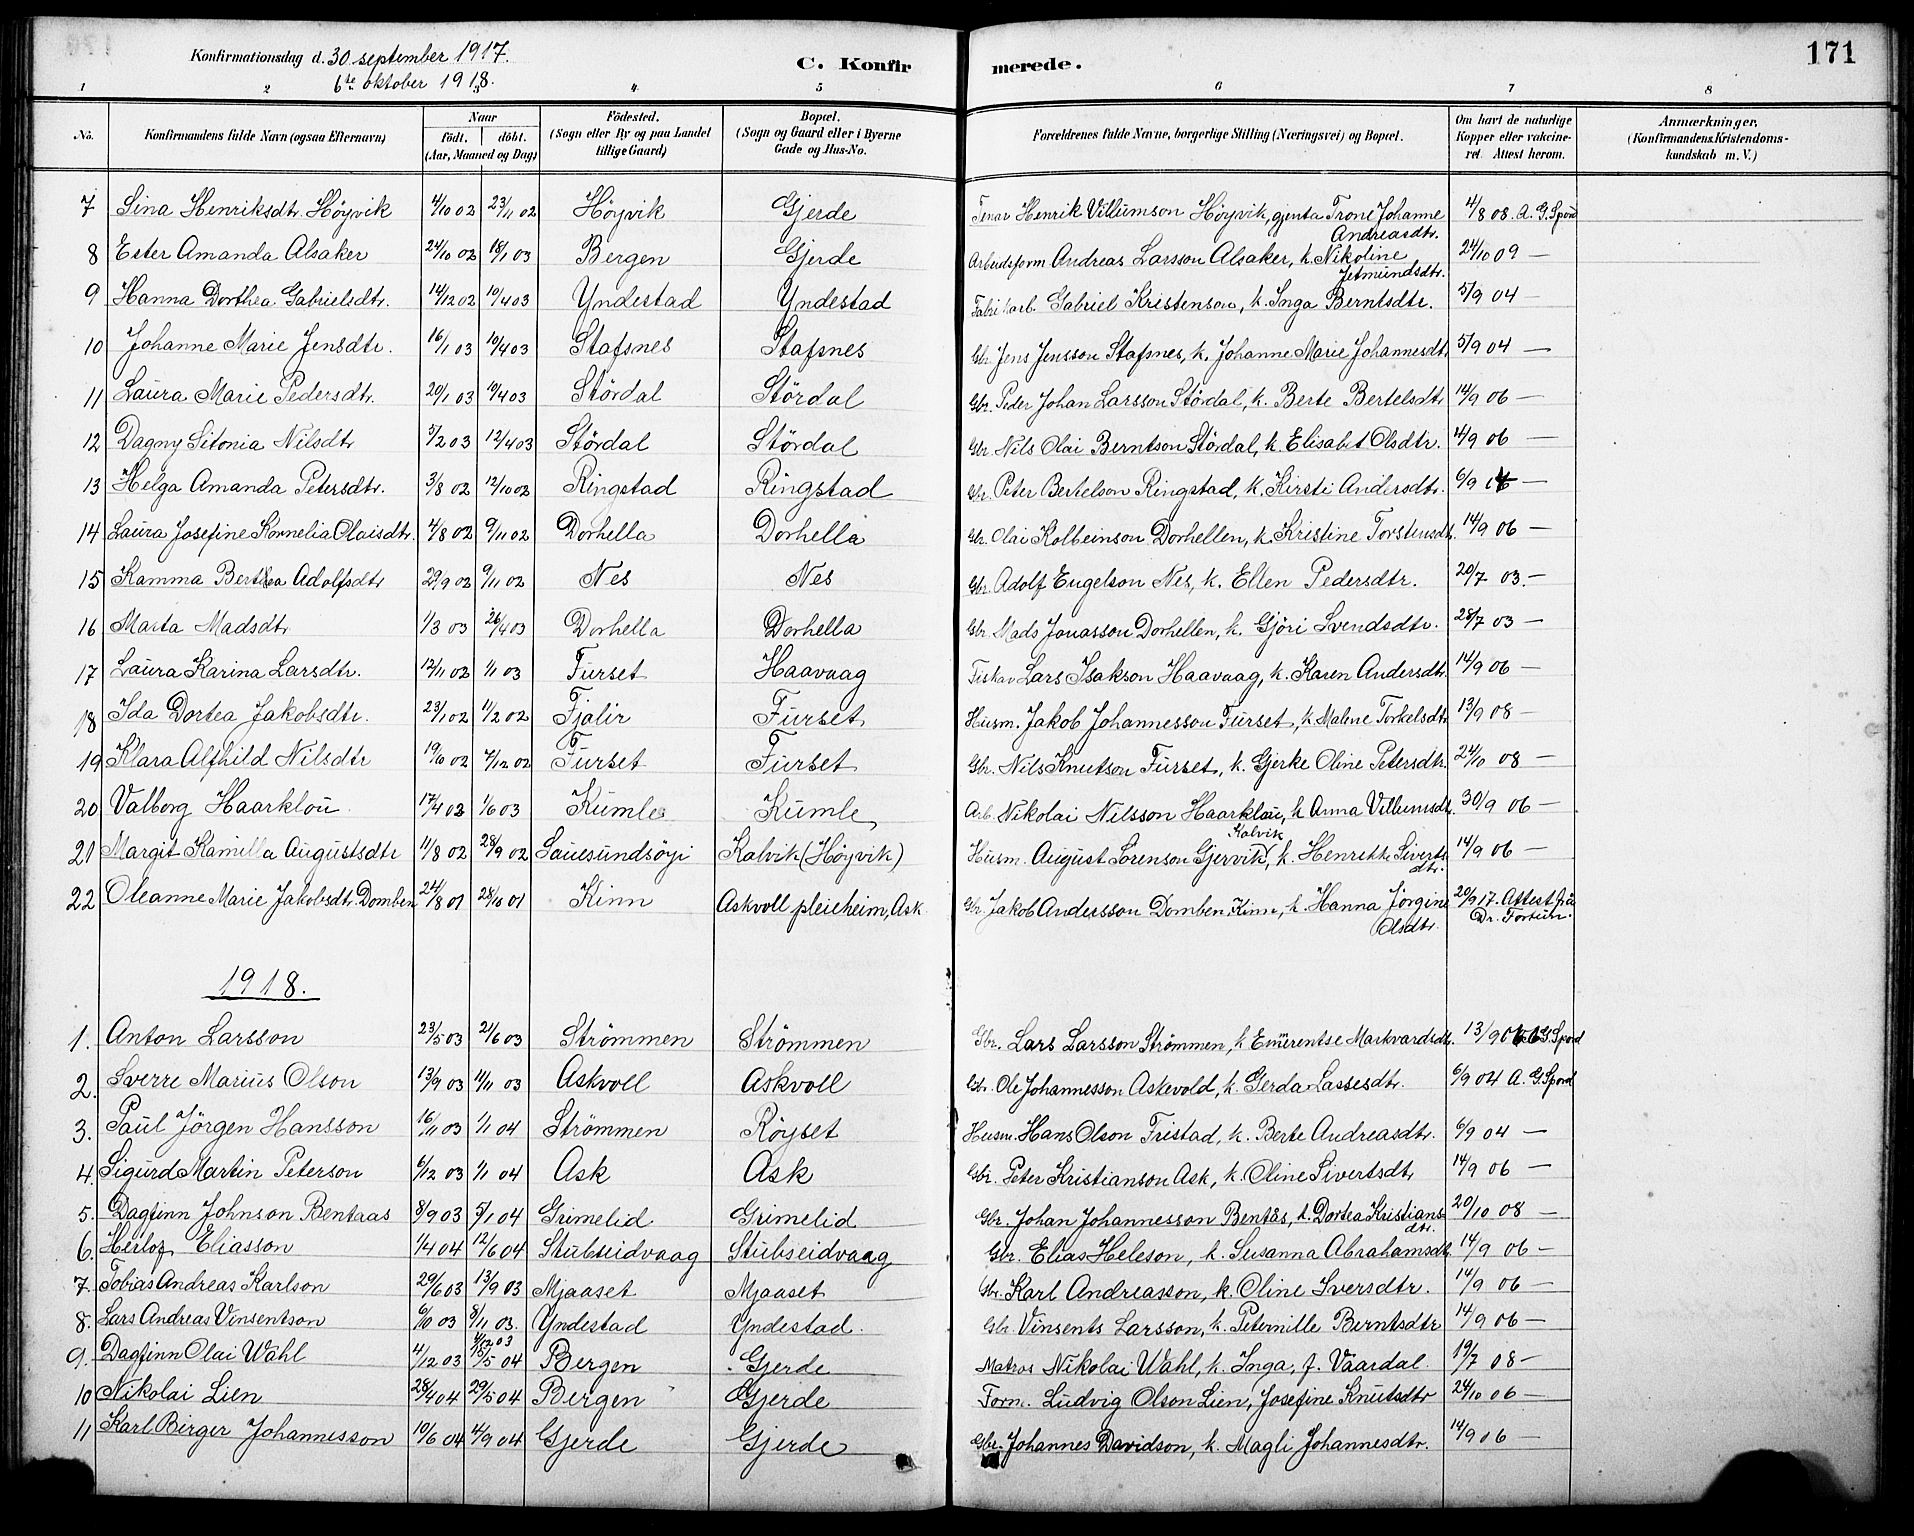 Konfirmationsdag d. 30 september 1917.
6te oktober 1918.
C. Konfirmerede.
171
1 2 3 4 5 6 7 8
No. Konfirmandens fulde Navn (ogsaa Efternavn) Naar født. døbt. (Aar, Maaned og Dag) Fødested. (Sogn eller By og paa Landet tillige Gaard) Bopæl. (Sogn og Gaard eller i Byerne Gade og Hus-No.) Forældrenes fulde Navne, borgerlige Stilling (Næringsvei) og Bopæl. Om havt de naturlige Kopper eller vakcineret. Attest herom. Anmærkninger, (Konfirmandens Kristendomskundskab m. V.)
7 Sina Henriksdtr. Höyvik 4/10 02 23/11 02 Höyvik Gjerde Henrik Villumson Höyvik, gjenta Trone Johanne Andreasdtr. 4/8 08. A. G. Spord
8 Ester Amanda Alsaker 24/10 02 18/1 03 Bergen Gjerde Arbeidsform Andreas Larsson Alsaker, k. Nikoline Jetmundsdtr. 24/10 09 —
9 Hanna Dorthea Gabrielsdtr. 14/12 02 10/4 03 Yndestad Yndestad Fabrikarb. Gabriel Kristenson, k. Inga Berntsdtr. 5/9 04 —
10 Johanne Marie Jensdtr. 16/1 03 10/4 03 Stafsnes Stafsnes Gbr. Jens Jensson Stafsnes, k. Johanne Marie Johannesdtr 5/9 04 —
11 Laura Marie Pedersdtr. 20/1 03 10/4 03 Stördal Stördal Gbr. Peder Johan Larsson Stördal, k. Berte Bertelsdtr 14/9 06 —
12 Dagny Sitonia Nilsdtr 5/2 03 12/4 03 Stördal Stördal Gbr. Nils Olai Berntson Stördal, k. Elisabet Olsdtr. 14/9 06 —
13 Helga Amanda Petersdtr. 3/8 02 12/10 02 Ringstad Ringstad Gbr. Peter Bertelson Ringstad, k. Kirsti Andersdtr. 6/9 —
14 Laura Josefine Kornelia Olaisdtr. 4/8 02 9/11 02 Dorhella Dorhella Gbr. Olai Kolbeinson Dorhellen, k. Kristine Torsteinsdtr. 14/9 06 —
15 Kamma Berthea Adolfsdtr 29/9 02 9/11 02 Nes Nes Gbr. Adolf Engelson Nes, k. Ellen Pedersdtr. 20/7 03. —
16 Marta Madsdtr 1/3 03 26/4 03 Dorhella Dorhella Gbr. Mads Jonasson Dorhellen, k. Gjöri Svendsdtr. 28/7 03 —
17 Laura Karina Larsdtr. 12/11 02 1/1 03 Furset Haavaag Fiskar Lars Isakson Haavaag, k. Karen Andersdtr. 14/9 06 —
18 Ida Dortea Jakobsdtr. 23/1 02 11/2 02 Fjalir Furset Husm. Jakob Johannesson Furset, k. Malene Torkelsdtr 13/9 08 —
19 Klara Alfhild Nilsdtr 19/6 02 7/12 02 Furset Furset Gbr. Nils Knutson Furset, k. Gjerke Oline Petersdtr. 24/10 08 —
20 Valborg Haarklou 17/4 02 1/6 03 Kumle Kumle Arb. Nikolai Nilsson Haarklou, k Anna Villumsdtr. 30/9 06 —
21 Margit Kamilla Augustsdtr 11/8 02 28/9 02 Sauesundsöyi Kalvik (Höyvik) Husm. August Sörenson Gjervik, Kalvik k. Henrikke Siverts dtr. 14/9 06 —
22 Oleanne Marie Jakobsdtr. Domben 24/8 01 28/10 01 Kinn Askvoll pleieheim, Ask. Gbr. Jakob Andersson Domben, Kinn, k. Hanna Jörgine Olsdtr. 20/9 17. Attest frå Dr. Fortun.
1918.
1. Anton Larsson 23/5 03 21/6 03 Strömmen Strömmen Gbr. Lars Larsson Strömmen, k Emerentse Markvardsdtr. 13/9 Spord
2. Sverre Marius Olson 13/9 03 11/11 03 Askvoll Askvoll Gbr. Ole Johannesson Askevold, k. Gerda Lassesdtr. 6/9 04 A. G. Spord
3. Paul Jörgen Hansson 16/11 03 1/1 04 Strömmen Röyset Husm. Hans Olson Tristad, k. Berte Andreasdtr. 6/9 04 —
4. Sigurd Martin Peterson 6/12 03 1/1 04 Ask Ask Gbr. Peter Kristianson Ask, k. Oline Sivertsdtr 14/9 06 —
5. Dagfinn Johnson Bentaas 8/9 03 5/1 04 Grimelid Grimelid Gbr. Johan Johannesson Bentås, k. Dortea Kristians- dtr. 20/10 08 —
6. Herlof Eliasson 1/4 04 12/6 04 Stubseidvaag Stubseidvaag Gbr. Elias Heleson, k. Susanna Abrahamsdtr. 14/9 06 —
7. Tobias Andreas Karlson 29/6 03 13/9 03 Mjaaset Mjaaset Gbr. Karl Andreasson, k. Oline Iversdtr. 14/9 06 —
8. Lars Andreas Vinsentson 6/10 03 8/11 03. Yndestad Yndestad. Gbr. Vinsents Larsson, k. Peternille Berntsdtr 14/9 06 —
9. Dagfinn Olai Wahl 4/12 03 15/5 04 Bergen Gjerde Matros Nikolai Wahl, k. Inga, f. Vaardal. 19/7 08 —
10 Nikolai Lien 28/4 04 29/5 04 Bergen Gjerde Form. Ludvig Olson Lien, Josefine Knutsdtr 24/10 06 —
11 Karl Birger Johannesson 10/6 04 4/9 04 Gjerde Gjerde Gbr. Johannes Davidson, k. Magli Johannesdtr. 14/9 06 —